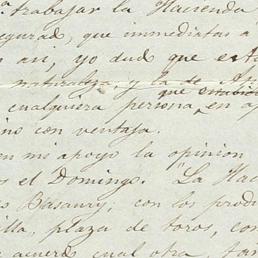 trabajar la Hacienda
segurad, que inmediatas a
n asi, yo dudo que esta
naturaleza, y la de
que
cualquiera persona, en
ino con ventaja.
en mi apoyo la opinion
s el Domingo. "La Hac
s Basaury; con los produ
illa, plaza de toros, con
acuerdo cual otra, tan